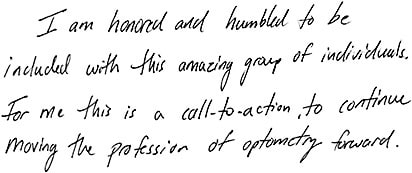 I am honored and humbled to be
included with this amazing group of individuals.
For me this is a call-to-action, to continue
moving the profession of optometry forward.